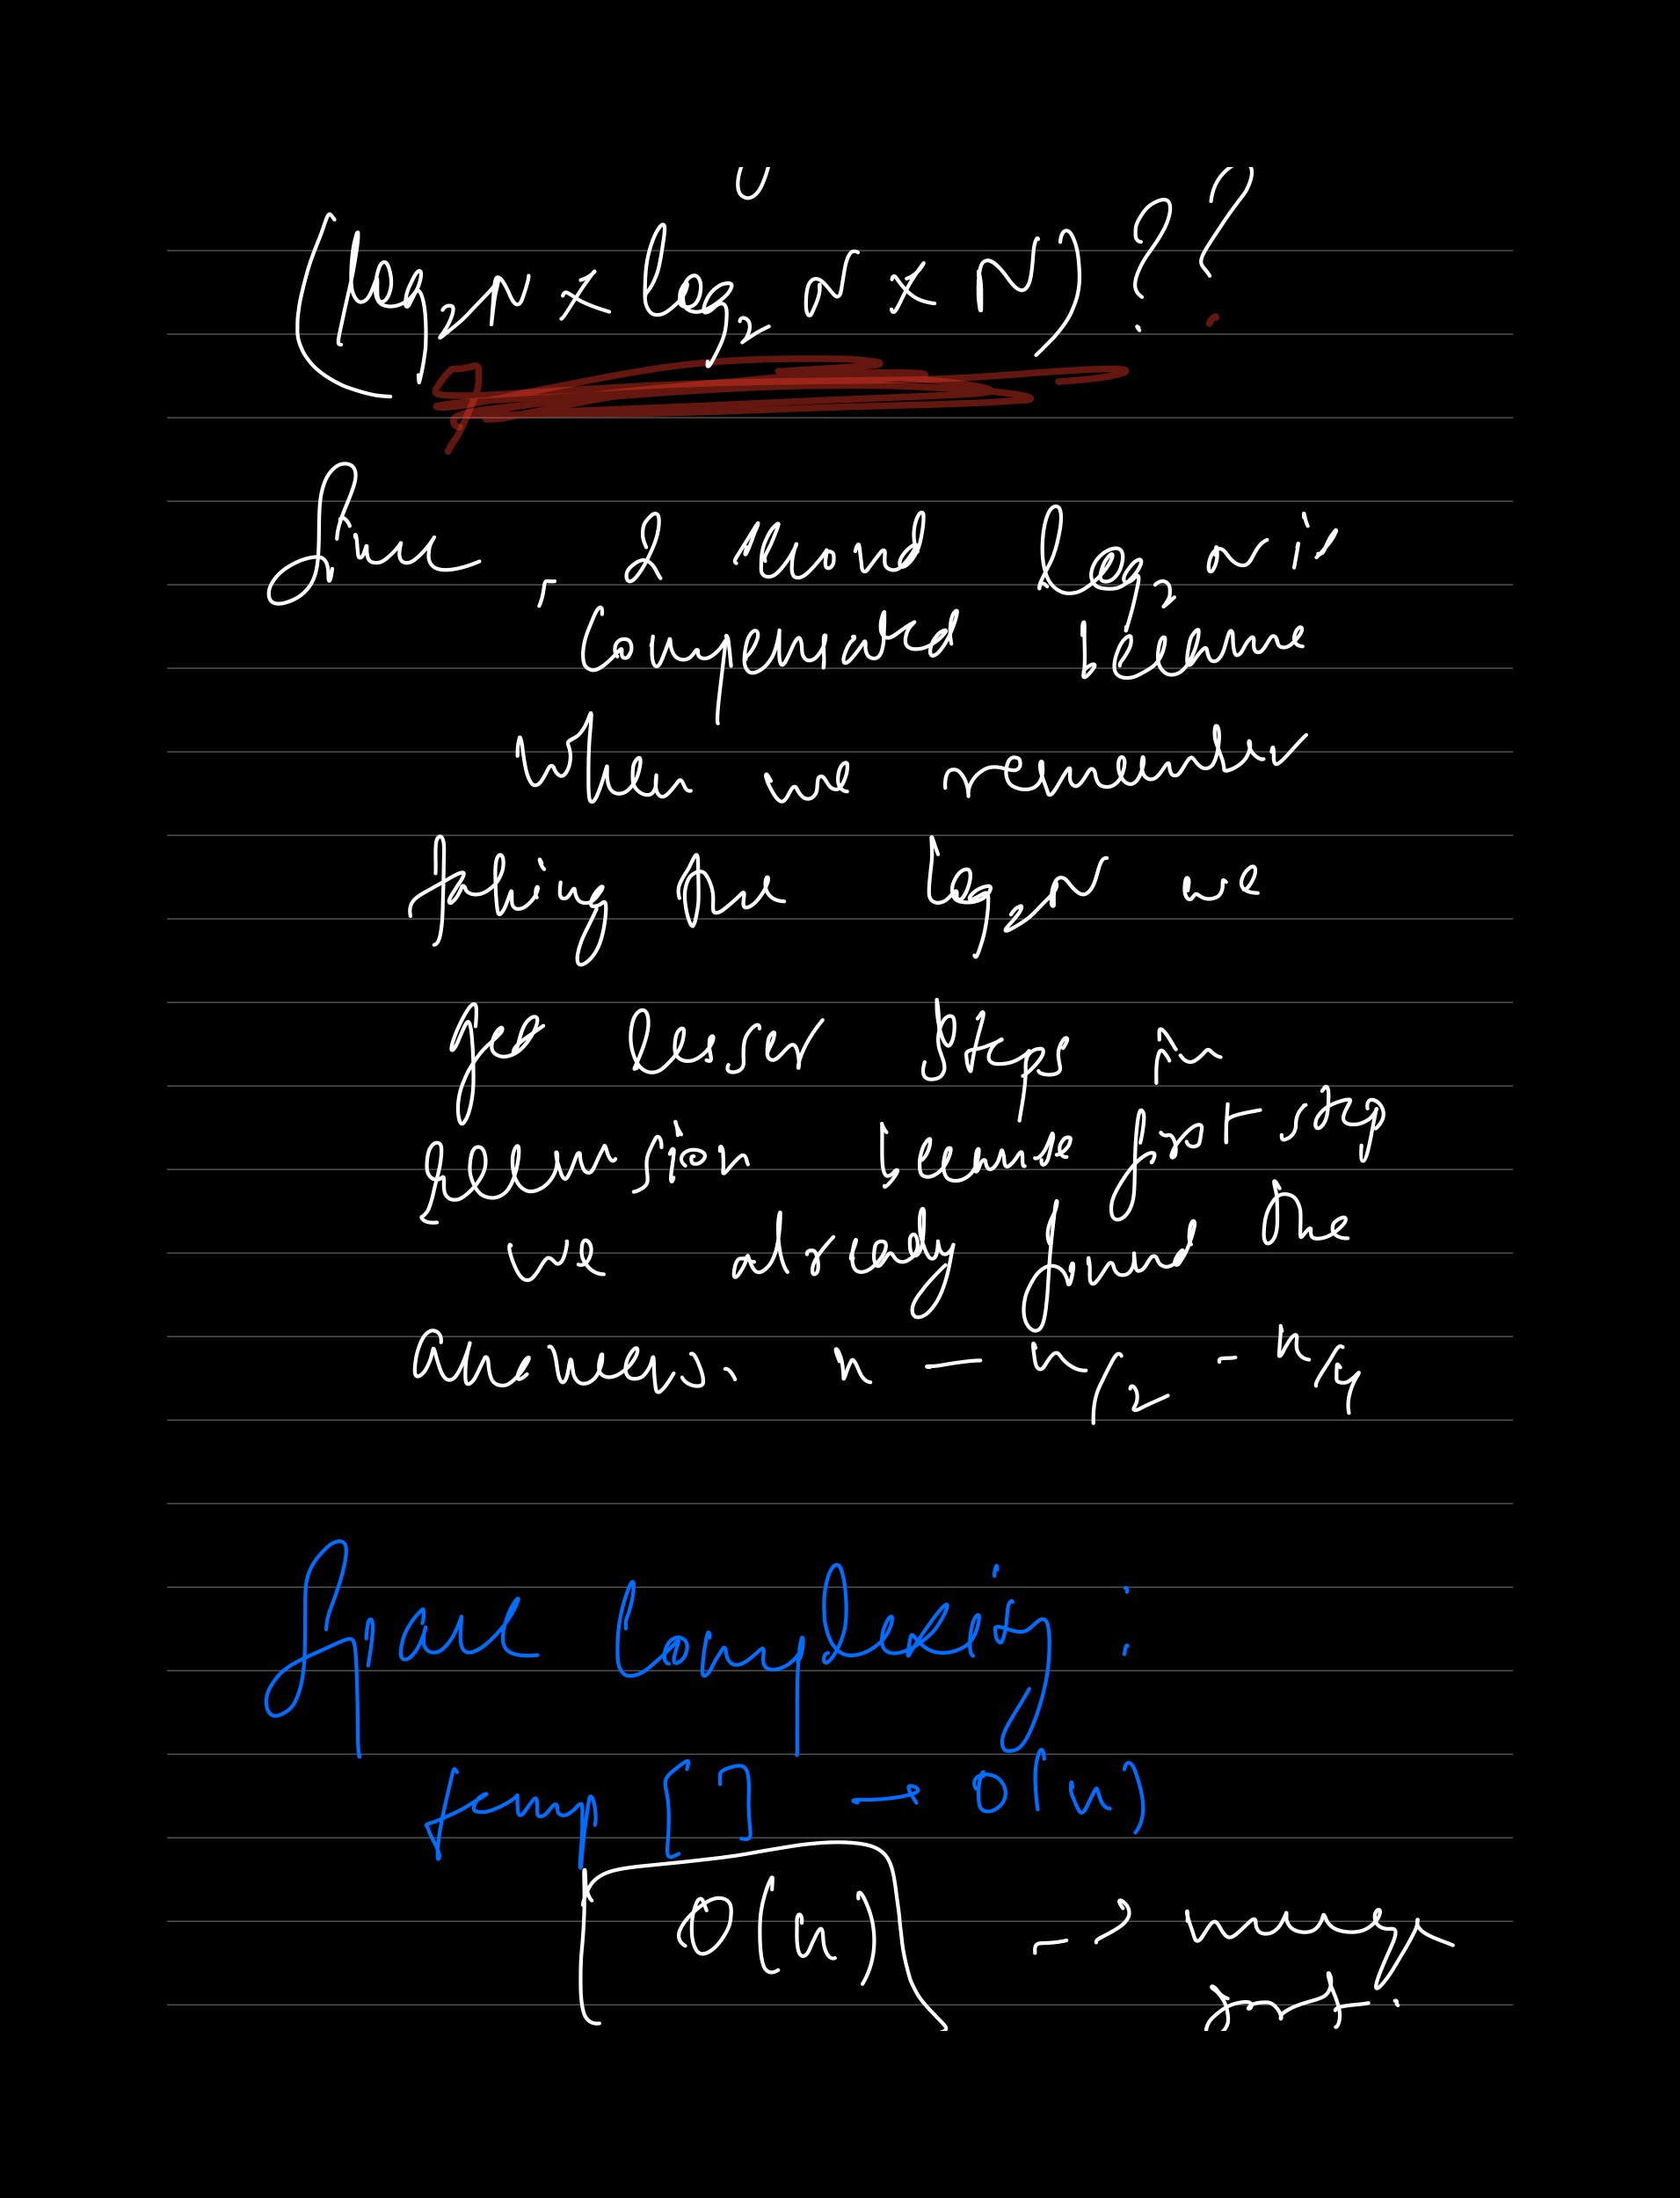 (log₂N × log₂ N × N)??
Since, 2 second log₂ N is
compensated because
when we remember
taking the log₂N we
get lesser steps in
recursion because first step
we already found the
answers. n — n/2 - n/4
Space Complexity:
temp [] → O(n)
O(n) --> merge
sort.